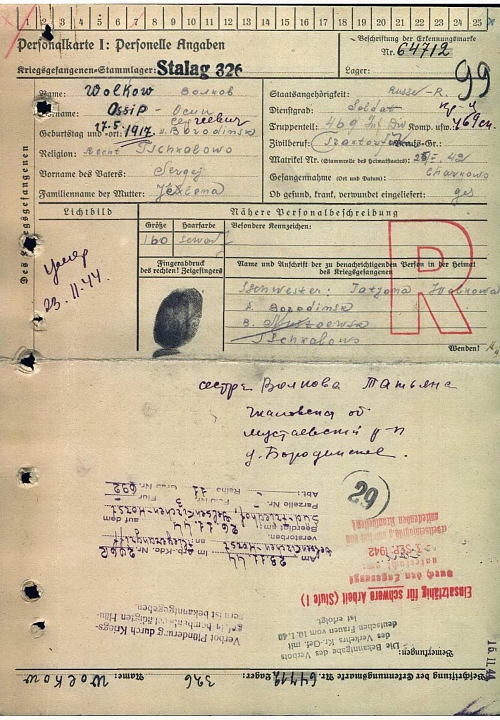 1 2 3 4 5 6 7 8 9 10 11 12 13 14 15 16 17 18 19 20 21 22 23 24 25
Personalkarte I: Personelle Angaben
Beschriftung der Erkennungsmarke
Nr. 64712
Kriegsgefangenen-Stammlager: Stalag 326
Lager:
99
Des Kriegsgefangenen
Name: Wolkow Волков
Vorname: Ossip - Осип
Сергеевич
Geburtstag und -ort: 17.5.1917. Borodinsk
Religion: Tschkalowo
Vorname des Vaters: Sergej
Familienname der Mutter: Jelena
Staatsangehörigkeit: Russe - R.
Dienstgrad: Soldat
Truppenteil: 469 Inf Div Komp. usw.:
Zivilberuf: Traktorist Berufs-Gr.:
Matrikel Nr. (Stammrolle des Heimatstaates):
Gefangennahme (Ort und Datum): Charkowo
Ob gesund, krank, verwundet eingeliefert: ges
Lichtbild
Nähere Personalbeschreibung
Größe Haarfarbe Besondere Kennzeichen:
160 schwarz
Fingerabdruck
des rechten! Zeigefingers
Name und Anschrift der zu benachrichtigenden Person in der Heimat
des Kriegsgefangenen
Schwester: Tatjana Wolkowa
Borodinsk
Tschkalowo
Wenden!
R
умер
23.11.44
сестре Волкова Татьяна
Чкаловская об
Мустаевский р-н
д. Бородинское.
29
Einsatzfähig für schwere Arbeit (Stufe I)
SEP. 1942
Am 23.11.44 im Arb.-Kdo. Nr.
Gelsenkirchen-Horst
verstorben
Beerdigt am: 26.11.44 auf dem
Südfriedhof, Gelsenkirchen-Horst
Parzelle Nr. Feld 3 Flur
Abt. Reihe 11 Grab Nr. 692
Verbot Plünderung durch Kriegs-
gef. in bombenbeschädigten Häu-
sern ist bekanntgegeben.
Bemerkungen:
Die Bekanntgabe des Verbots
des Verkehrs Kr.-Gef. mit
deutschen Frauen vom 10.1.40
ist erfolgt.
Beschriftung der Erkennungsmarke Nr. 64712 Lager: 326 Name: Wolkow